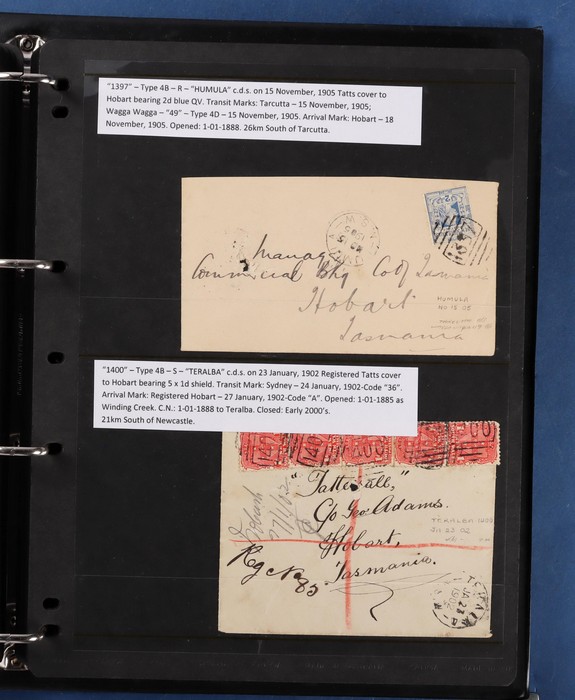 "1397" – Type 4B – R – "HUMULA" c.d.s. on 15 November, 1905 Tatts cover to
Hobart bearing 2d blue QV. Transit Marks: Tarcutta – 15 November, 1905;
Wagga Wagga – "49" – Type 4D – 15 November, 1905. Arrival Mark: Hobart – 18
November, 1905. Opened: 1-01-1888. 26km South of Tarcutta.
Manager
Commercial Bkg Co of Tasmania
Hobart
Tasmania
HUMULA
NO 15 05
"1400" – Type 4B – S – "TERALBA" c.d.s. on 23 January, 1902 Registered Tatts cover
to Hobart bearing 5 x 1d shield. Transit Mark: Sydney – 24 January, 1902-Code "36".
Arrival Mark: Registered Hobart – 27 January, 1902-Code "A". Opened: 1-01-1885 as
Winding Creek. C.N.: 1-01-1888 to Teralba. Closed: Early 2000's.
21km South of Newcastle.
"Tattersall,"
C/o Geo. Adams.
Hobart,
Tasmania.
27/1/02
Reg No 85
TERALBA 1400
JA 23 02
JA 23
1902